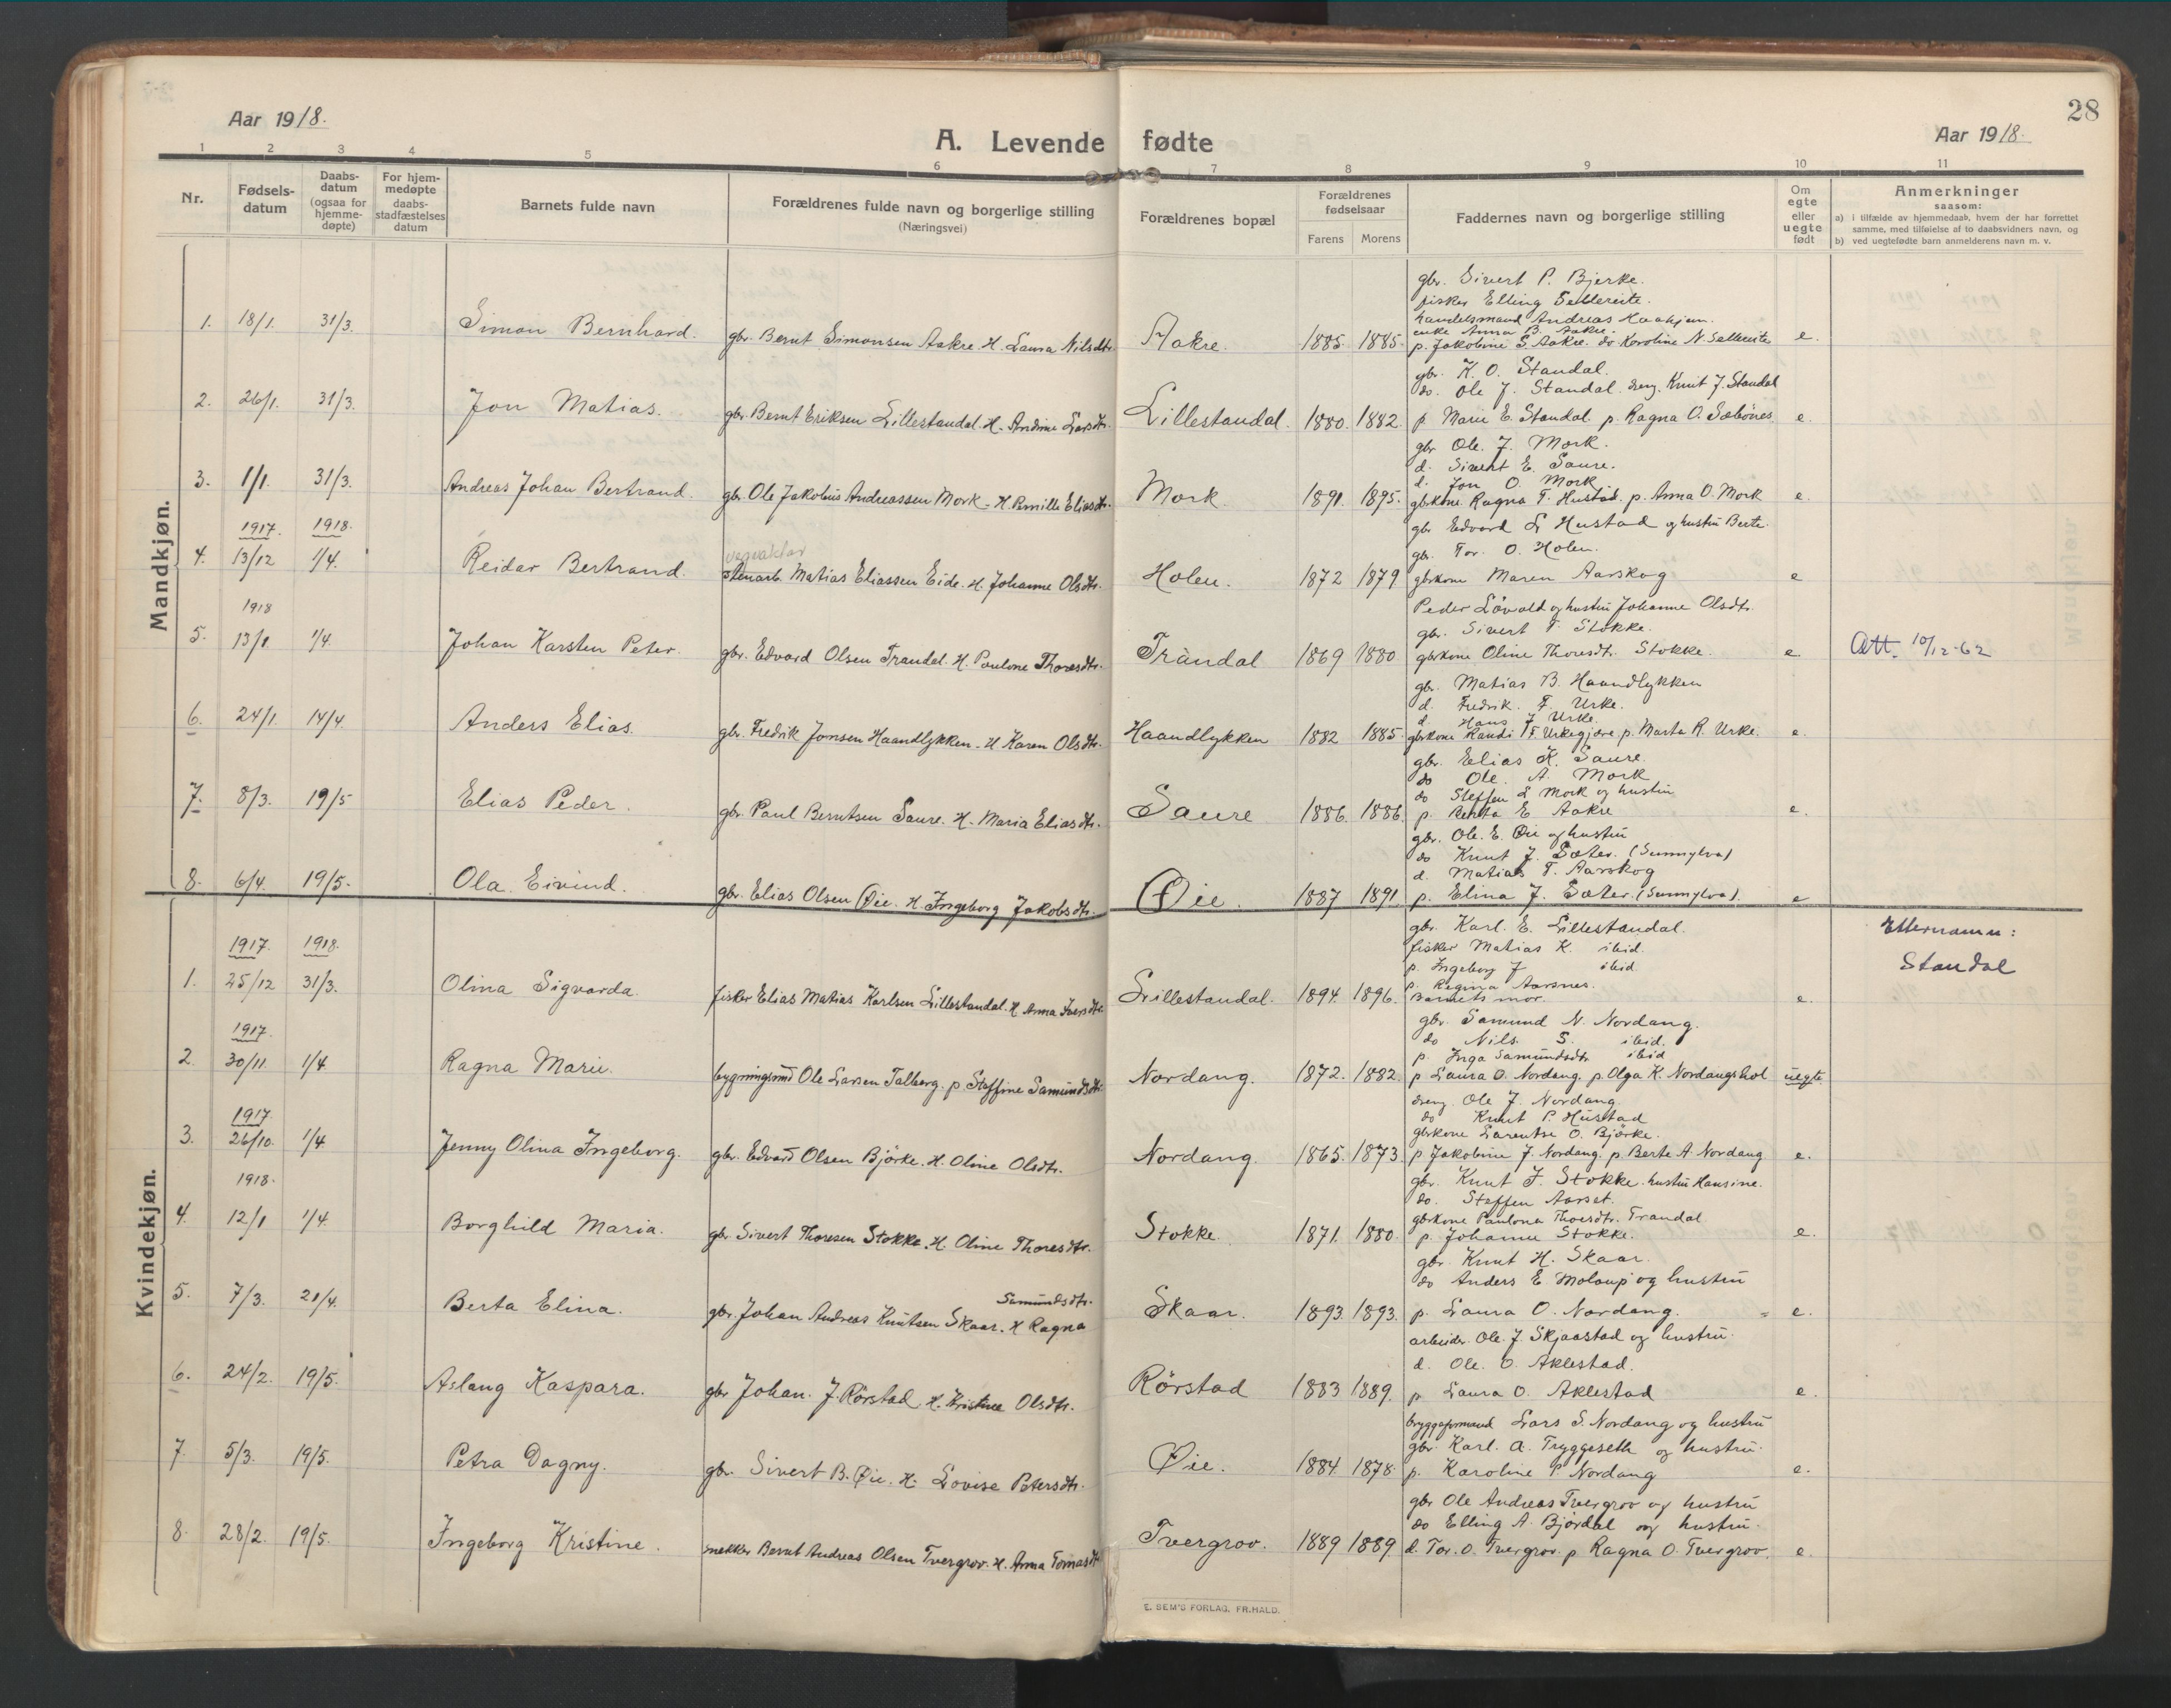 28
Aar 1918.
A. Levende fødte
Aar 1918.
1 2 3 4 5 6 7 8 9 10 11
Nr.
Fødsels-
datum
Daabs-
datum
(ogsaa for
hjemme-
døpte)
For hjem-
medøpte
daabs-
stadfæstelses
datum
Barnets fulde navn
Forældrenes fulde navn og borgerlige stilling
(Næringsvei)
Forældrenes bopæl
Forældrenes
fødselsaar
Farens Morens
Faddernes navn og borgerlige stilling
Om
egte
eller
uegte
født
Anmerkninger
saasom:
a) i tilfælde av hjemmedaab, hvem der har forrettet
samme, med tilføielse af to daabsvidners navn, og
b) ved uegtefødte barn anmelderens navn m. v.
Mandkjøn.
gbr. Sivert P. Bjerke.
fisker Elling Sellereite.
handelsmand Andreas Haahjem.
enke Anna B. Aakre.
1. 18/1. 31/3. Simon Bernhard. gbr. Bernt Simonsen Aakre. H. Laura Nilsdtr. Aakre. 1885. 1885. p. Jakobine S. Aakre. do Karoline N. Sellereite e.
gbr. K. O. Standal.
do. Ole J. Standal. dreng. Knut J. Standal
2. 26/1. 31/3. Jon Matias. gbr. Bernt Eriksen Lillestandal. H. Andrine Larsdtr. Lillestandal. 1880. 1882. p. Marie E. Standal. p. Ragna O. Sæbönes e.
gbr. Ole. J. Mork.
d. Sivert E. Saure.
d. Jon O. Mork
3. 1/1. 31/3. Andreas Johan Bertrand. gbr. Ole Jakobus Andreassen Mork. H. Pernille Eliasdtr. Mork. 1891. 1895. gbrkone. Ragna T. Hustad. p. Anna O. Mork e.
1917. 1918.
gbr. Edvard L. Hustad og hustru Berte.
gbr. Tor. O. Holen.
vegvaktar
4. 13/12 1/4. Reidar Bertrand. stenarb. Matias Eliassen Eide. H. Johanne Olsdtr. Holen. 1872 1879 gbrkone Maren Aarskog e
1918
Peder Lövold og hustru Johanne Olsdtr.
gbr. Sivert T. Stokke.
5. 13/1. 1/4. Johan Karsten Peter. gbr. Edvard Olsen Trandal. H. Paulone Thoresdtr. Trandal 1869 1880 gbrkone Oline Thoresdtr. Stokke. e Att. 10/12-62
gbr. Matias B. Haandlykken
d. Fredrik. F. Urke.
d. Hans J Urke.
6. 24/1. 14/4. Anders Elias. gbr. Fredrik Jonsen Haandlykken. H Karen Olsdtr. Haandlykken 1882 1885. gbrkone Randi F. Urkegjære p. Marta R. Urke. e.
gbr. Elias K. Saure.
do Ole. A Mork
do Steffen L Mork og hustru
7. 8/3. 19/5 Elias Peder. gbr. Paul Berntsen Saure. H. Maria Eliasdtr. Saure 1886. 1886. p. Berta E Aakre e.
gbr. Ole. E. Øie og hustru
do Knut J. Sæter. (Sunnylven)
d. Matias T. Aarskog
8. 6/4. 19/5. Ola Eivind. gbr. Elias Olsen Øie. H. Ingeborg Jakobsdtr. Øie. 1887 1891. p. Elina J. Sæter. (Sunnylven). e
Kvindekjøn.
gbr. Karl. E. Lillestandal.
1917. 1918.
fisker Matias K. ibid.
p. Ingeborg J ibid.
p. Regina Aarsnes.
Etternamn:
Standal
1. 25/12 31/3. Olina Sigvarda. fisker Elias Matias Karlsen Lillestandal. H Anna Iversdtr. Lillestandal. 1894. 1896. Barnets mor. e.
1917.
gbr. Samund N. Nordang.
do Nils. S. ibid.
p. Inga Samundsdtr. ibid
2. 30/11. 1/4. Ragna Marie. bygningssnd Ole Larsen Talberg. p Steffine Samundsdtr. Nordang. 1872. 1882. p Laura O. Nordang. p. Olga K. Nordangshol uegte
1917.
dreng. Ole J. Nordang.
do Knut P. Hustad
gbrkone Larentse O. Björke.
3. 26/10. 1/4 Jenny Olina Ingeborg. gbr. Edvard Olsen Björke. H. Oline Olsdtr. Nordang. 1865. 1873. p Jakobine J. Nordang. p. Berte A. Nordang e.
1918.
gbr. Knut J. Stokke. hustru Hansine.
do. Staffen Aarset.
gbrkone Paulona Thoresdtr. Trandal
4. 12/1 1/4. Borghild Maria. gbr Sivert Thoresen Stokke. H. Oline Thoresdtr. Stokke. 1871. 1880. p. Johanne Stokke. e.
gbr. Knut H. Skaar.
do Anders E. Molaup og hustru
Samundsdtr.
5. 7/3. 21/4. Berta Elina. gbr. Johan Andreas Knutsen Skaar. H Ragna Skaar. 1893. 1893. p. Laura O. Nordang. e.
arbeider. Ole. J. Skjaastad og hustru.
d. Ole. O. Aklestad.
6. 24/2. 19/5. Aslaug Kaspara. gbr Johan. J. Rörstad. H. Kristine Olsdtr. Rörstad 1883 1889. p. Laura O. Aklestad e.
bryggeformand Lars S. Nordang og hustru
gbr. Karl. A. Tryggeseth og hustru.
7. 5/3. 19/5. Petra Dagny. gbr. Sivert B. Øie. H. Lovise Petersdtr. Øie. 1884. 1878. p. Karoline P Nordang e.
gbr Ole Andreas Tvergrov og hustru
do Elling A. Bjørdal og hustru.
8 28/2. 19/5. Ingeborg Kristine. snekker Bernt Andreas Olsen Tvergrov. H. Anna Tomasdtr Tvergrov. 1889 1889. d. Tor. O. Tvergrov. p Ragna O. Tvergrov. e.
E. SEM'S FORLAG, FR.HALD.